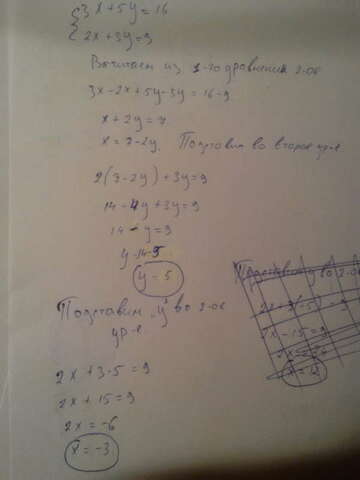 3x+5y=16
2x+3y=9
Вычитаем из 1-го уравнения 2-ое
3x-2x+5y-3y=16-9
x+2y=7
x=7-2y. Подставим во второе ур-е
2(7-2y)+3y=9
14-4y+3y=9
14-y=9
y=14-9
y=5
Подставим "y" во 2-ое
ур-е.
2x+3·5=9
2x+15=9
2x=-6
x=-3
Подставим y во 2-ое
2x-15=9
x=12